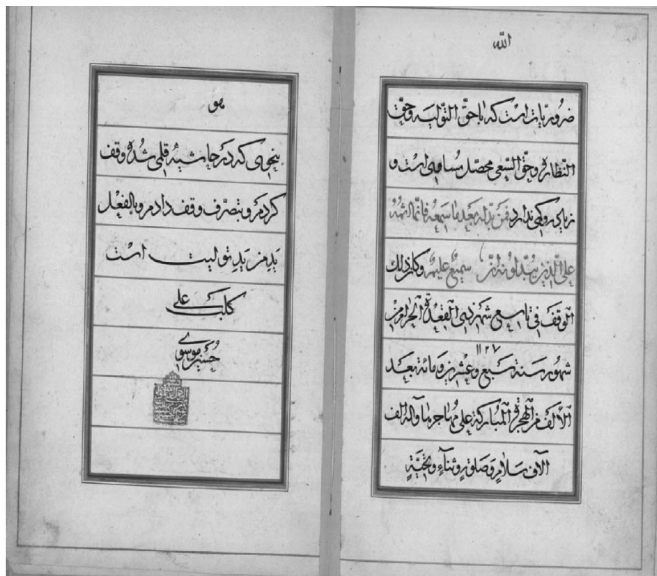 الله
ضروریات است که با حق التولیه و حق
النظاره و حق السعی محصل مساوی است و
زیاد و کمی ندارد فمن بدله بعد ما سمعه فانما اثمه
علی الذین یبدلونه ان سمیع علیم و کان ذلک
الوقف فی تاسع شهر ذی القعدة الحرام من
۱۱۲۷
شهور سنة سبع و عشرین و مائة بعد
الألف من الهجرة المبارکة علی مهاجرها و آله الف
الآف سلام و صلوة و ثناء و تحیة
هو
بنحوی که در حاشیه قلمی شده وقف
کردم و بتصرف وقف دادم و بالفعل
ید من ید تولیت است
کلب علی
حسین موسوی